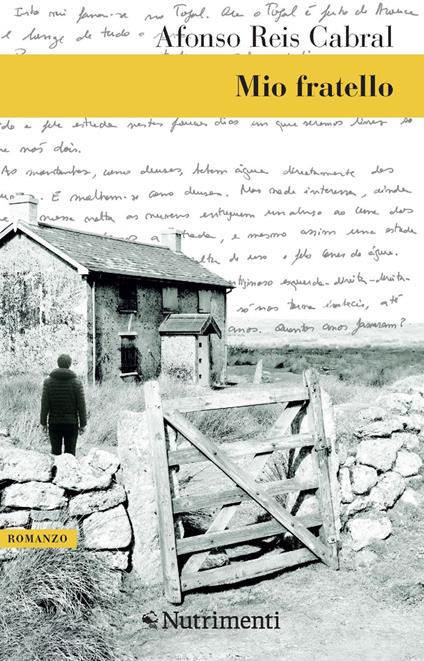 Isto vai passar-se no Tojal. Que o Tojal é perto de Arouca
e longe de tudo o
Afonso Reis Cabral
Mio fratello
do e pela estrada nestes poucos dias em que seremos livres
e nós dois.
As montanhas, como deuses, bebem água directamente das
E molham-se como deuses. Mas nada interessa, ainda
nossa volta as nuvens entreguem um abraço ao cume dos
estrada, e mesmo assim uma estada
de uso e pelo correr da água.
esquerda-direita-direita-
só nos torna
até
anos. Quantos anos passaram?
ROMANZO
Nutrimenti